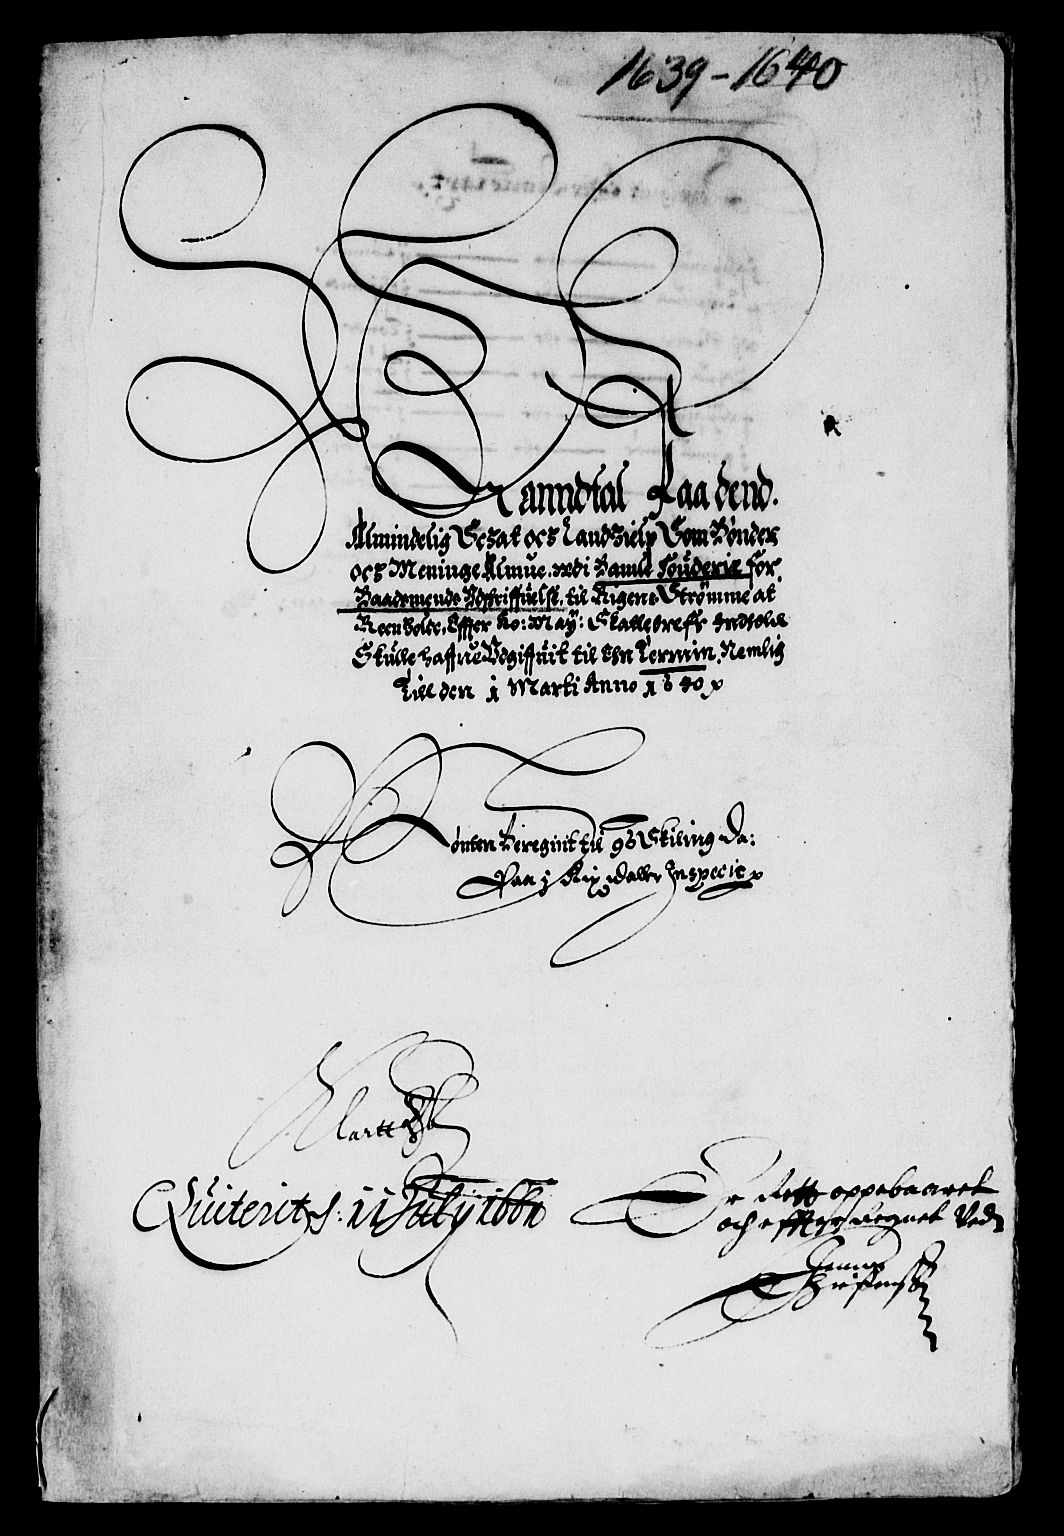 1639-1640
Manndtal Paa dend.
Almindelig Schat och Landhielp Som Bønder
och Meninge Almue. vdi Bamle Fouderie for
Baadsmends Vdschriffuelse, til Rigens Strømme at
Reenholde, Effter Ko: May: Skattebreffs Indhold
Skulle haffue Vdgiffuit til Thn Termin, Nemlig
Till den 1 Marti Anno 1640
Mønten Beregnit til 96 Skiling Da:
Paa 1 Rix daller In specie
Quiterit d. 11 July 1661
Er Rett oppebaaret
och effter Regnet Ved
Christens